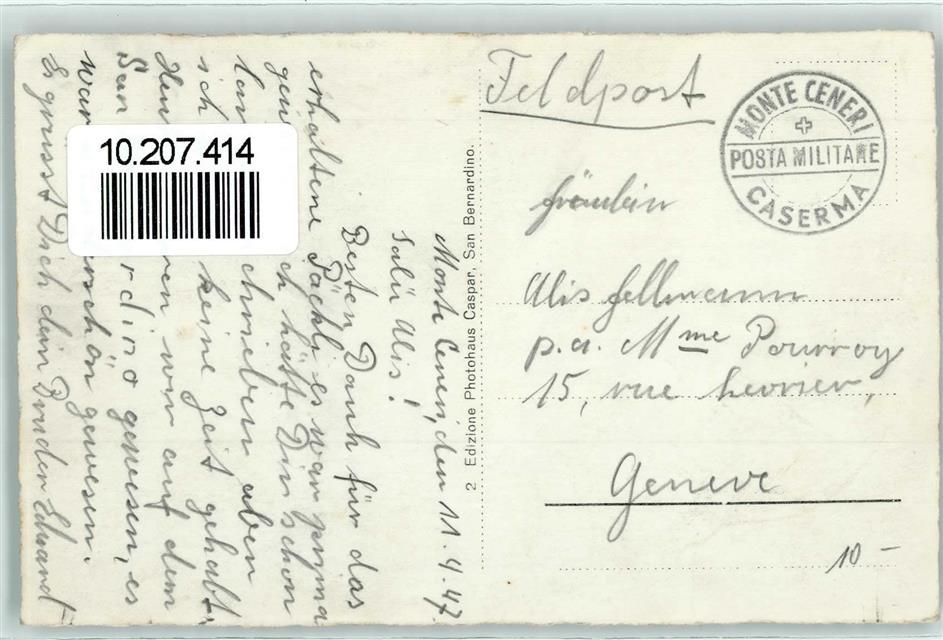 Feldpost
MONTE CENERI
POSTA MILITARE
CASERMA
Fräulein
Alis Fellmann
p.a. Mme Pourroy
15, rue Levrier,
Geneve
10 –
2 Edizione Photohaus Caspar, San Bernardino.
Monte Ceneri, den 11.4.47.
Salü Alis!
Besten Dank für das
erhaltene Päckli es war prima
ch hätte Dir schon
lan chrieben aben
sich keine Zeit gehabt,
en wir auf dem
San rdino gewesen, es
war schön gewesen.
Es grüsst Dich dein Bruder Edward
10.207.414